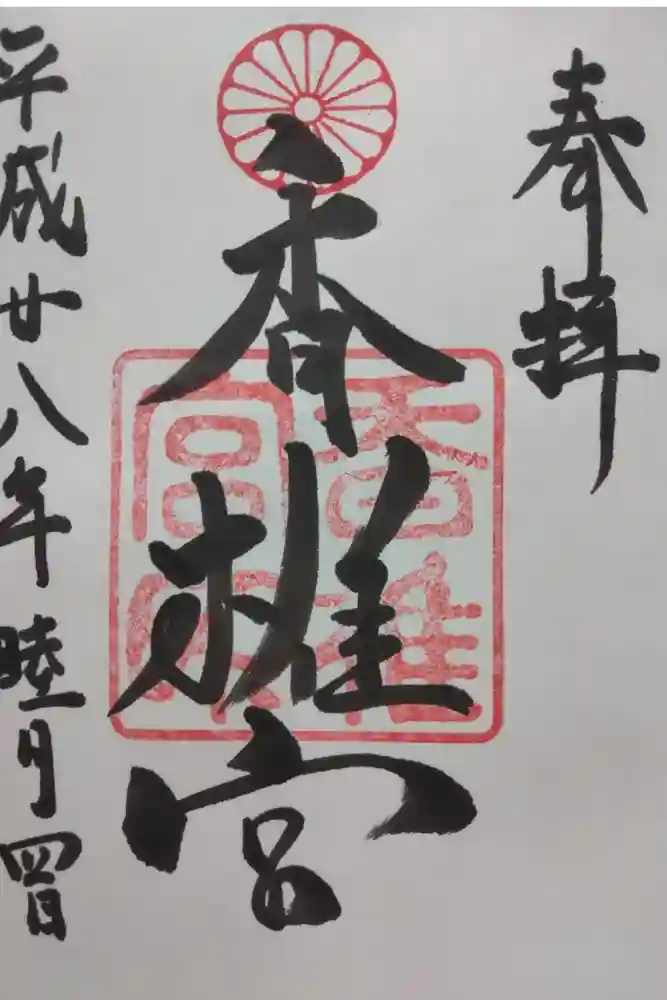 奉拝
香椎宮
香椎宮
平成廿八年睦月四日